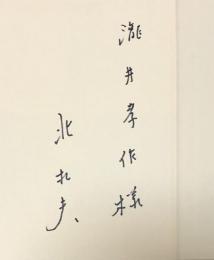 瀧井孝作様
北杜夫